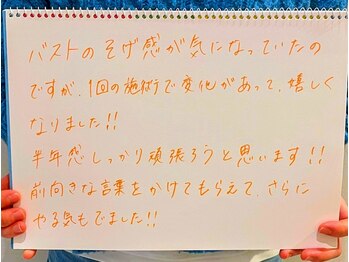 バストのそげ感が気になっていたの
ですが、1回の施術で変化があって、嬉しく
なりました!!
半年感しっかり頑張ろうと思います!!
前向きな言葉をかけてもらえて、さらに
やる気もでました!!